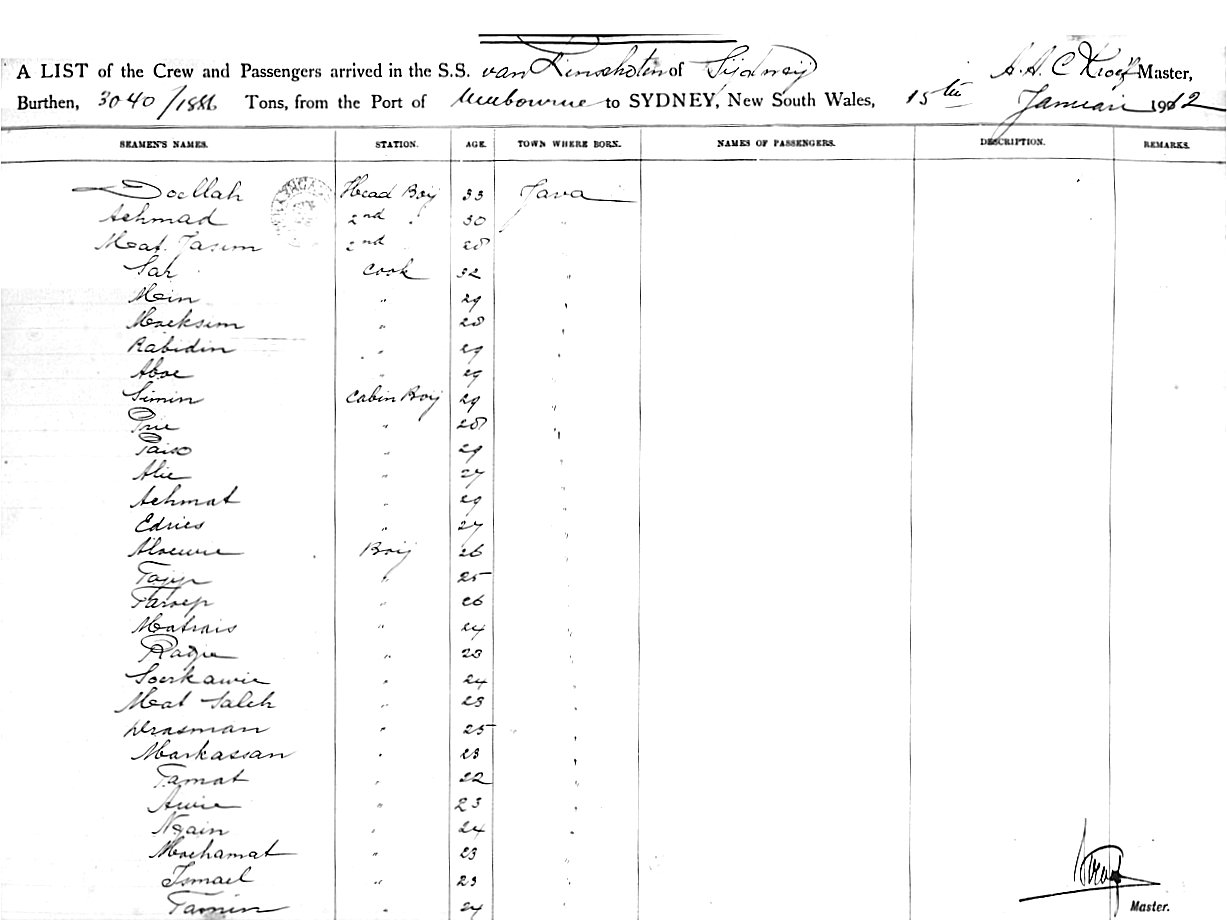 A LIST of the Crew and Passengers arrived in the S.S. van Linschoten of Sijdneij A. H. C Kroef Master,
Burthen, 3040/1886 Tons, from the Port of Melbourne to SYDNEY, New South Wales, 15th Januari 1912
SEAMEN'S NAMES. STATION. AGE. TOWN WHERE BORN. NAMES OF PASSENGERS. DESCRIPTION. REMARKS.
Doellah Head Boij 33 Java
Achmad 2nd " 30 "
Mat Jasim 2nd 28 "
Sar cook 32 "
Min " 29 "
Moeksim " 28 "
Rabidin " 29 "
Aboe " 29 "
Simin Cabin Boij 29 "
Prie " 28 "
Paiso " 29 "
Alie " 27 "
Achmat " 29 "
Edries " 27 "
Aloewie Boij 26 "
Tajip " 25 "
Taroep " 26 "
Matrais " 24 "
Radjie " 23 "
Soerkawie " 24 "
Mat Saleh " 23 "
Drasman " 25 "
Markassan " 23 "
Tamat " 22 "
Awie " 23 "
Ngain " 24 "
Mochamat " 23 "
Ismael " 23 "
Tamin " 24 "
Kroef
Master.